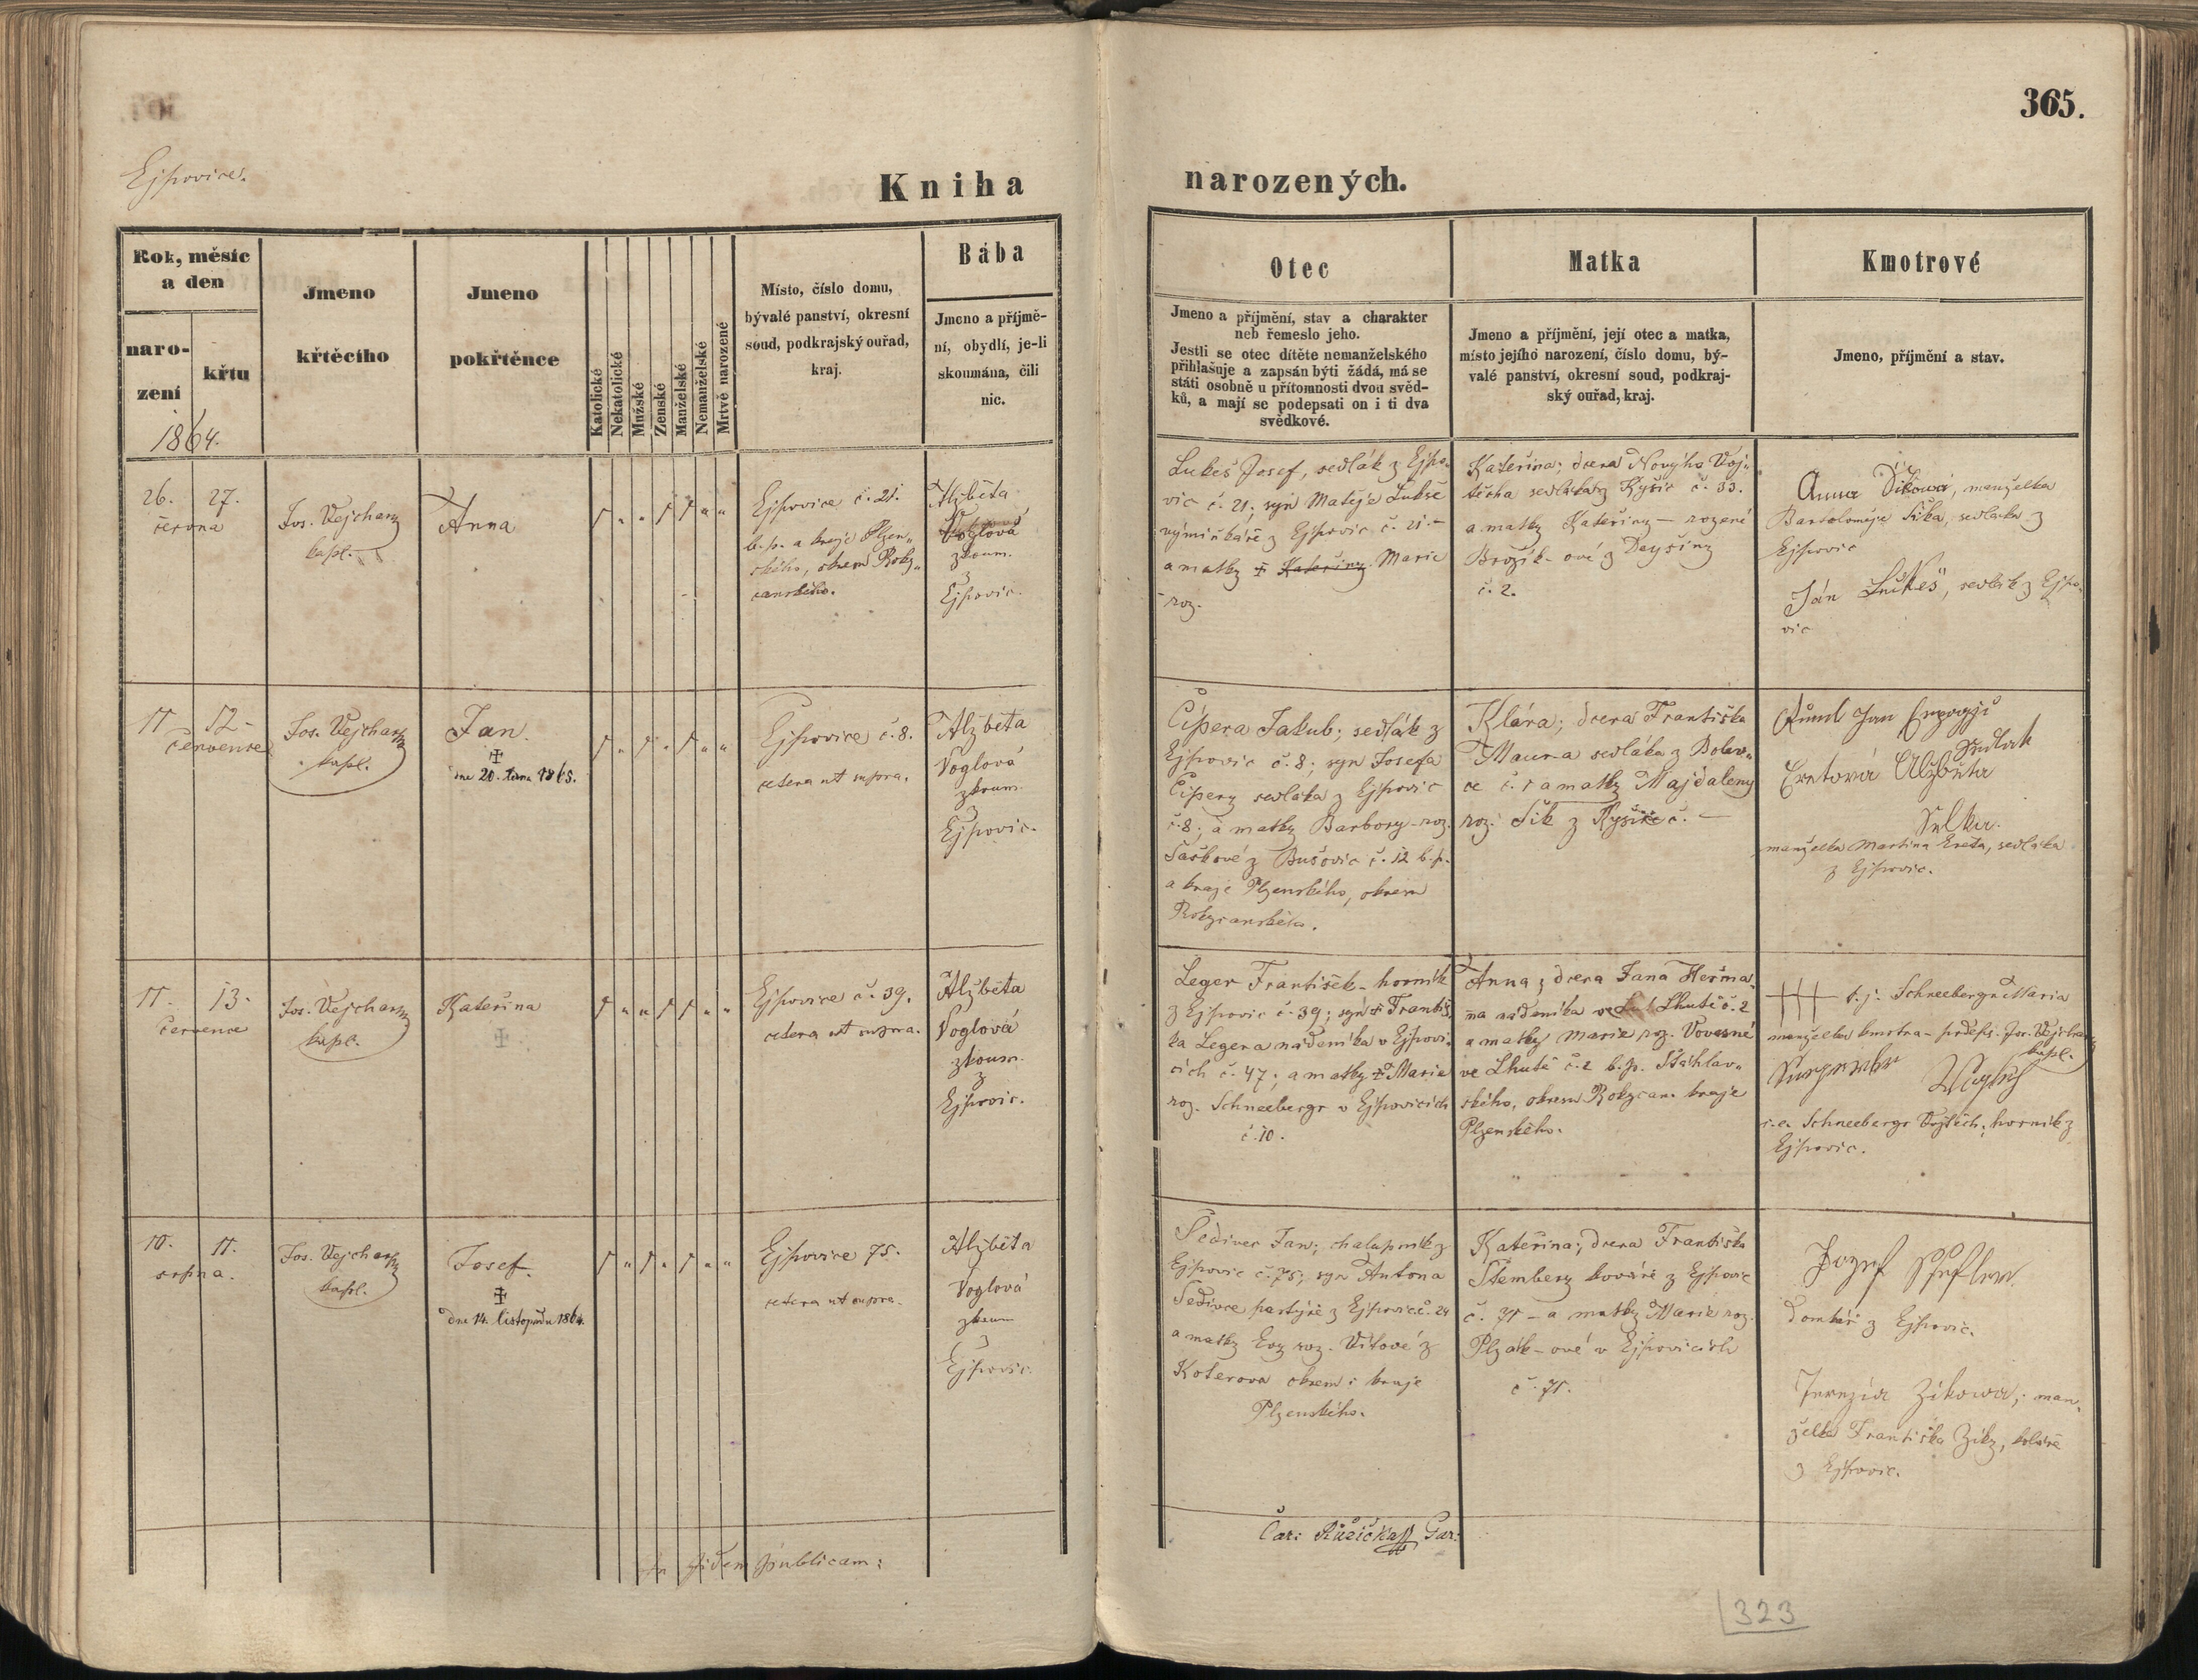 365.
Ejpovice.
Kniha narozených.
Rok, měsíc
a den
naro-
zení
křtu
1864.
Jmeno
křtěcího
Jmeno
pokřtěnce
Katolické
Nekatolické
Mužské
Ženské
Manželské
Nemanželské
Mrtvě narozené
Místo, číslo domu,
bývalé panství, okresní
soud, podkrajský ouřad,
kraj.
Bába
Jmeno a příjmě-
ní, obydlí, je-li
skoumána, čili
nic.
Otec
Jmeno a příjmění, stav a charakter
neb řemeslo jeho.
Jestli se otec dítěte nemanželského
přihlašuje a zapsán býti žádá, má se
státi osobně u přítomnosti dvou svěd-
ků, a mají se podepsati on i ti dva
svědkové.
Matka
Jmeno a příjmění, její otec a matka,
místo jejího narození, číslo domu, bý-
valé panství, okresní soud, podkraj-
ský ouřad, kraj.
Kmotrové
Jmeno, příjmění a stav.
26. 27.
června
Jos. Vejchar
kapl.
Anna
Ejpovice č. 21.
b. p. a kraje Plzen„
ského, okresu Roky„
canského.
Alžběta
Voglová
zkoum.
z
Ejpovic.
Lukeš Josef, sedlák z Ejpo„
vic č. 21; syn Matěje Lukše
výminkáře z Ejpovic č. 21.
a matky Kateřiny Marie
roz.
Kateřina; dcera Nového Voj„
těcha sedláka z Kyšic č. 33.
a matky Kateřiny – rozené
Brožík-ové z Deyšiny
č. 2.
Anna Šikowá, manželka
Bartoloměje Šika, sedláka z
Ejpovic
Ján Lukeš, sedlák z Ejpo„
vic
11 12
července
Jos. Vejchar
kapl.
Jan.
dne 20. 1865.
Ejpovice č. 8.
cetera ut supra.
Alžběta
Voglová
zkoum.
z
Ejpovic.
Cípera Jakub; sedlák z
Ejpovic č. 8; syn Josefa
Cípery sedláka z Ejpovic
č. 8; a matky Barbory roz.
Saškové z Bušovic č. 12 b. p.
a kraje Plzenského, okresu
Rokycanského.
Klára; dcera Františka
Maura sedláka z Bolev„
ce č. 1 a matky Majdaleny
roz. Šik z Kyšic č. –
Jan
Sedlak
Eretová Alžběta
Selka.
manželka Martina Ereta, sedláka
z Ejpovic.
11. 13.
července
Jos. Vejchar
kapl.
Kateřina
Ejpovice č. 39.
cetera ut supra.
Alžběta
Voglová
zkoum.
z
Ejpovic.
Leger František – horník
z Ejpovic č. 39; syn Františ„
ka Legera nádeníka v Ejpovi„
cích č. 47; a matky Marie
roz. Schneebergr v Ejpovicích
č. 10.
Anna; dcera Jana Heřma„
na nádeníka ve Lhutě č. 2
a matky Marie roz. Vovesné
ve Lhutě č. 2 b. p. Štáhlav„
ského, okresu Rokycan. kraje
Plzenského.
+++ t. j. Schneebergr Maria
manželka kmotra – podeps. Jos. Vejchar
kapl.
i. e. Schneebergr Vojtěch, horník z
Ejpovic.
10. 11.
srpna.
Jos. Vejchar
kapl.
Josef.
dne 14. listopadu 1864.
Ejpovice 75.
cetera ut supra.
Alžběta
Voglová
zkoum
z
Ejpovic.
Šedivec Jan; chalupník z
Ejpovic č. 75; syn Antona
Šedivce pastýře z Ejpovic č. 24
a matky Evy roz. Vítové z
Koterova okresu i kraje
Plzenského.
Kateřina; dcera Františka
Štembery kováře z Ejpovic
č. 71 – a matky Marie roz.
Plzák-ové v Ejpovicích
č. 71.
Jozef
domkář z Ejpovic.
Terezia Zikowa; man„
želka Františka Ziky, koláře
z Ejpovic.
In fidem publicam:
Car: Růžička Par:
323